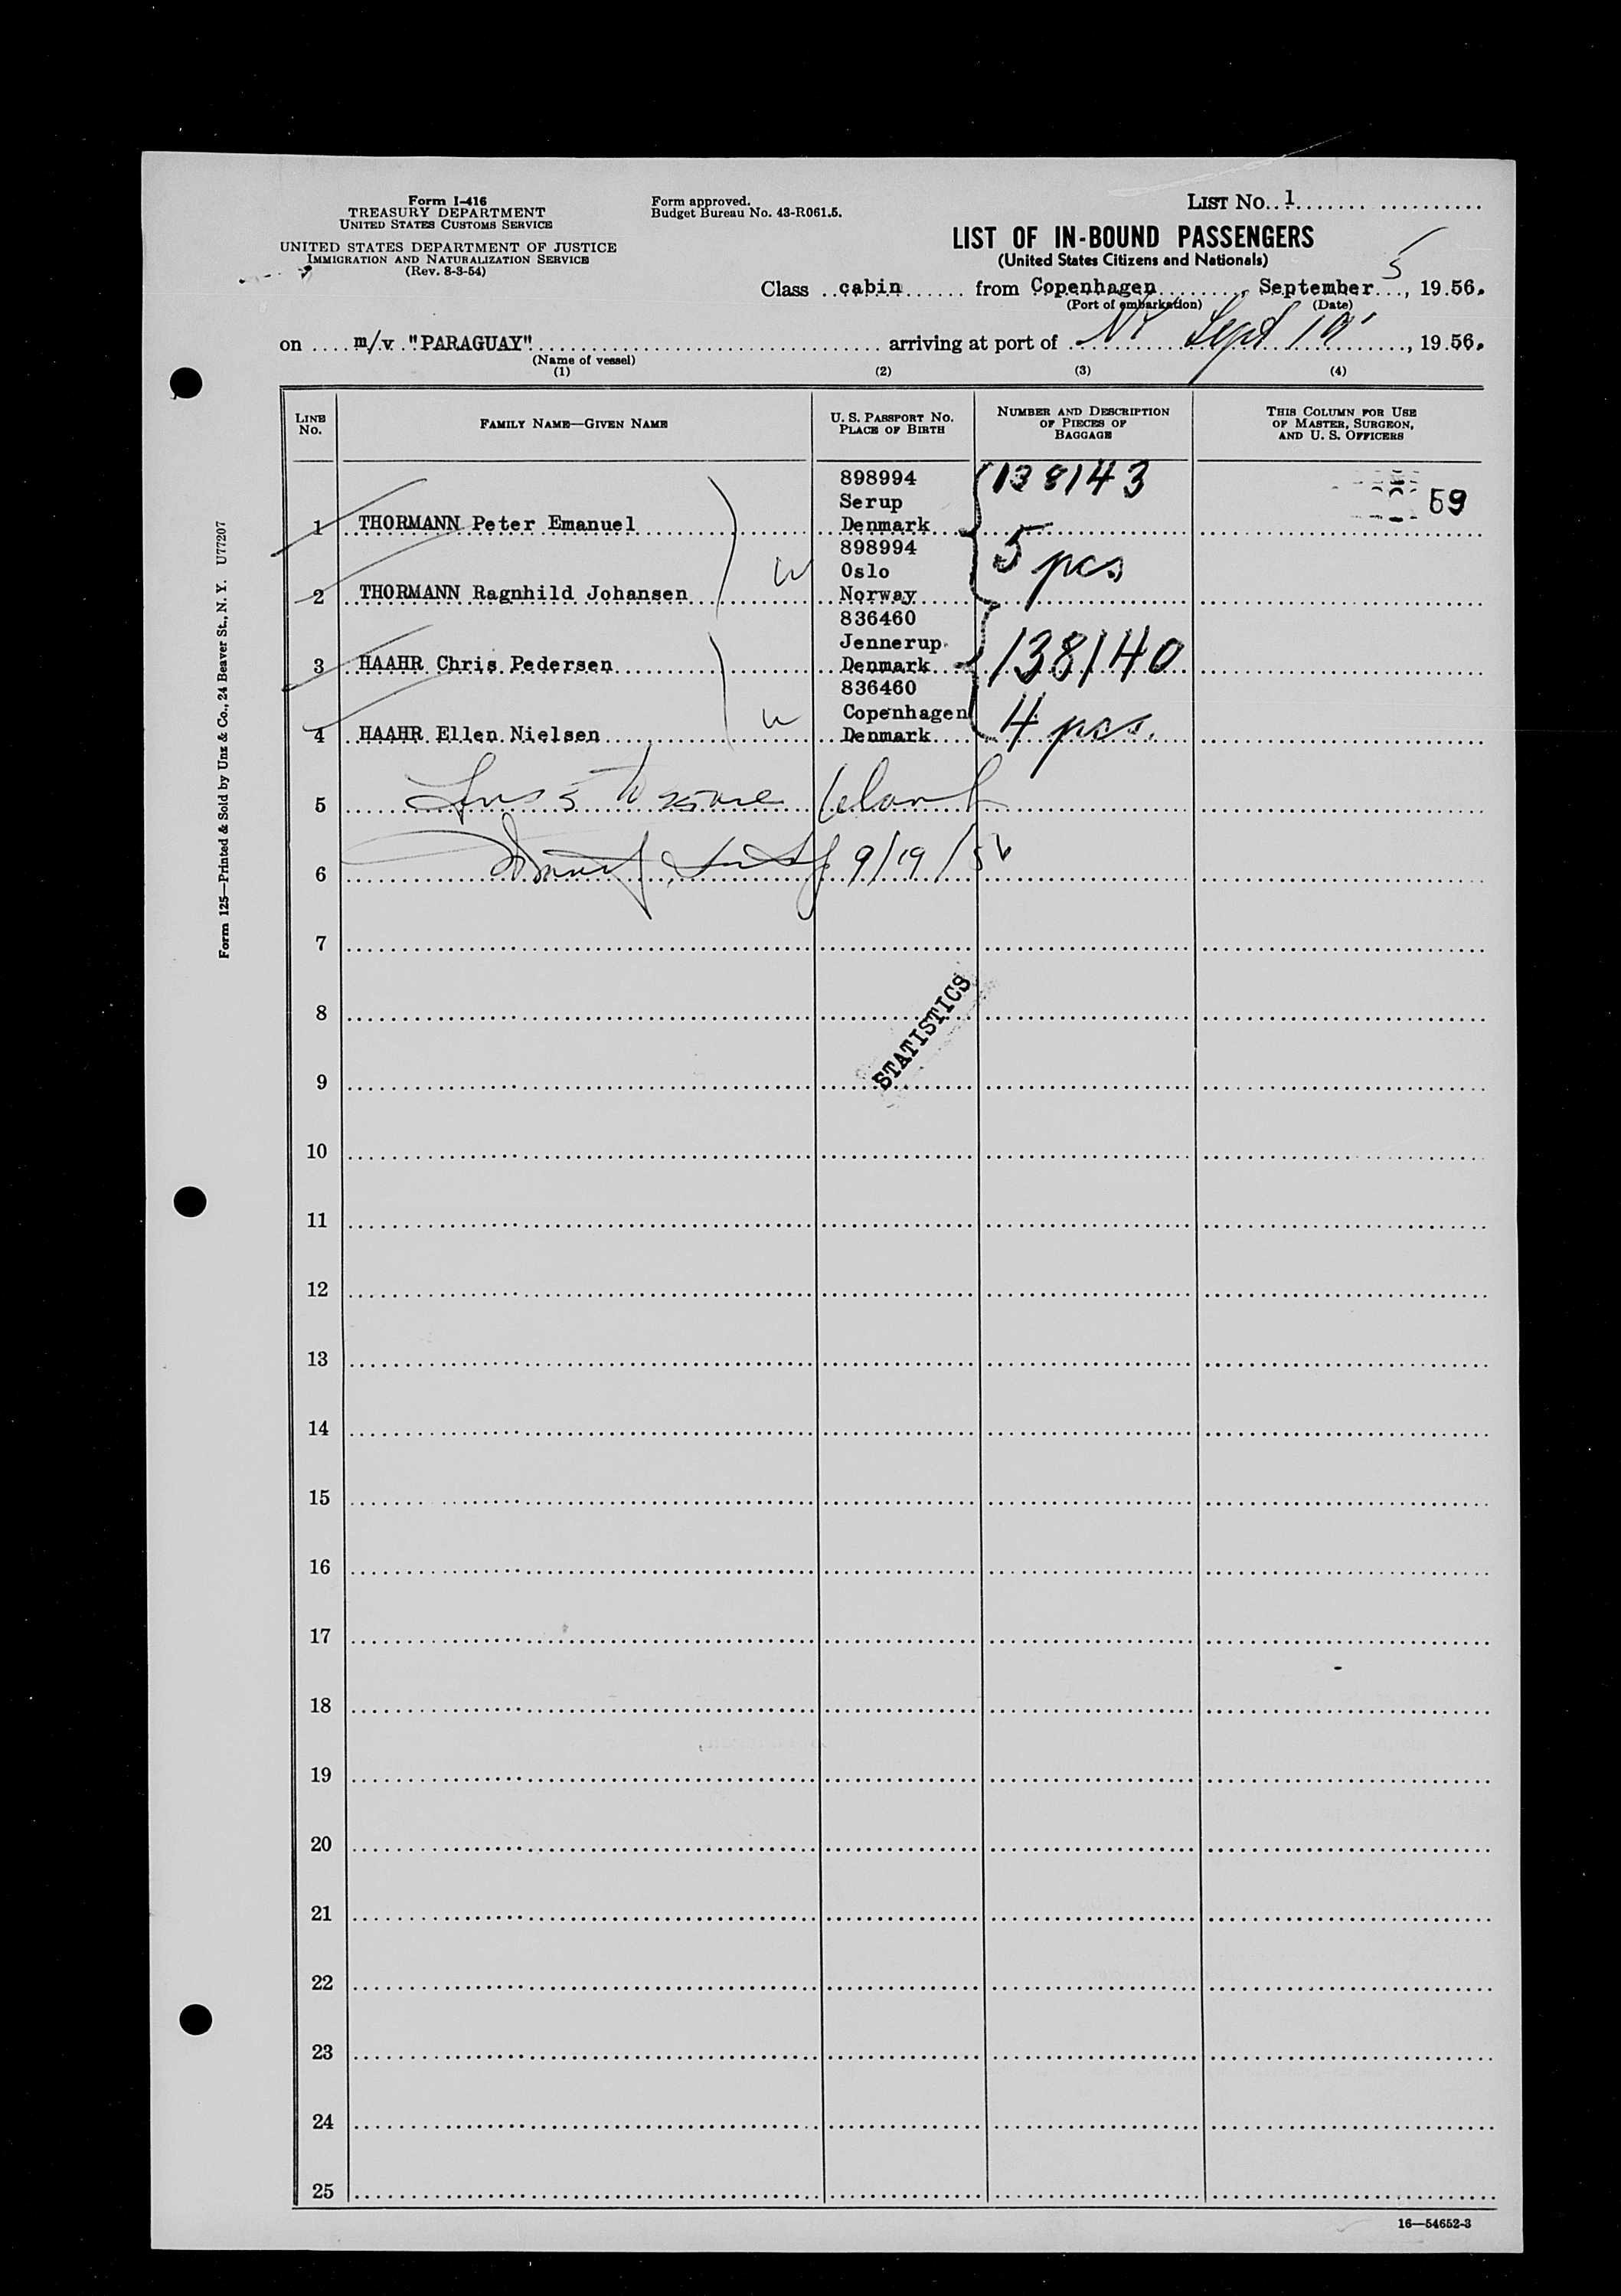 Form I-416
TREASURY DEPARTMENT
UNITED STATES CUSTOMS SERVICE
UNITED STATES DEPARTMENT OF JUSTICE
IMMIGRATION AND NATURALIZATION SERVICE
(Rev. 8-3-54)
Form approved.
Budget Bureau No. 43-R061.5.
LIST No. 1
LIST OF IN-BOUND PASSENGERS
(United States Citizens and Nationals)
Class cabin from Copenhagen, September 5, 1956.
(Port of embarkation) (Date)
on m/v "PARAGUAY" arriving at port of NY Sept, 1956.
(Name of vessel)
(1) (2) (3) (4)
LINE No. FAMILY NAME—GIVEN NAME U. S. PASSPORT No. PLACE OF BIRTH NUMBER AND DESCRIPTION OF PIECES OF BAGGAGE THIS COLUMN FOR USE OF MASTER, SURGEON, AND U. S. OFFICERS
898994 138143
Serup 59
1 THORMANN Peter Emanuel Denmark
898994 5 pcs
Oslo
2 THORMANN Ragnhild Johansen Norway
836460
Jennerup 138140
3 HAAHR Chris Pedersen Denmark
836460
Copenhagen 4 pcs.
4 HAAHR Ellen Nielsen Denmark
5 blank
6 9/19/56
7
8
STATISTICS
9
10
11
12
13
14
15
16
17
18
19
20
21
22
23
24
25
16—54652-3
Form 125—Printed & Sold by Unz & Co., 24 Beaver St., N. Y. U77207